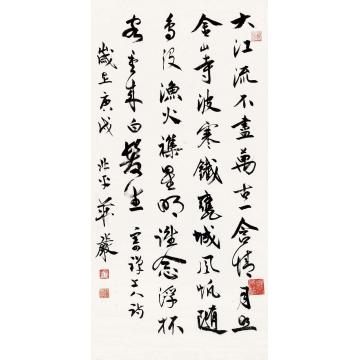 大江流不盡萬古一含情月照
金山寺波寒鐵甕城風帆隨
鳥没漁火襍星明誰念浮杯
客重來白髮生 寄禪上人詩
歲在庚戌 北平 華巖